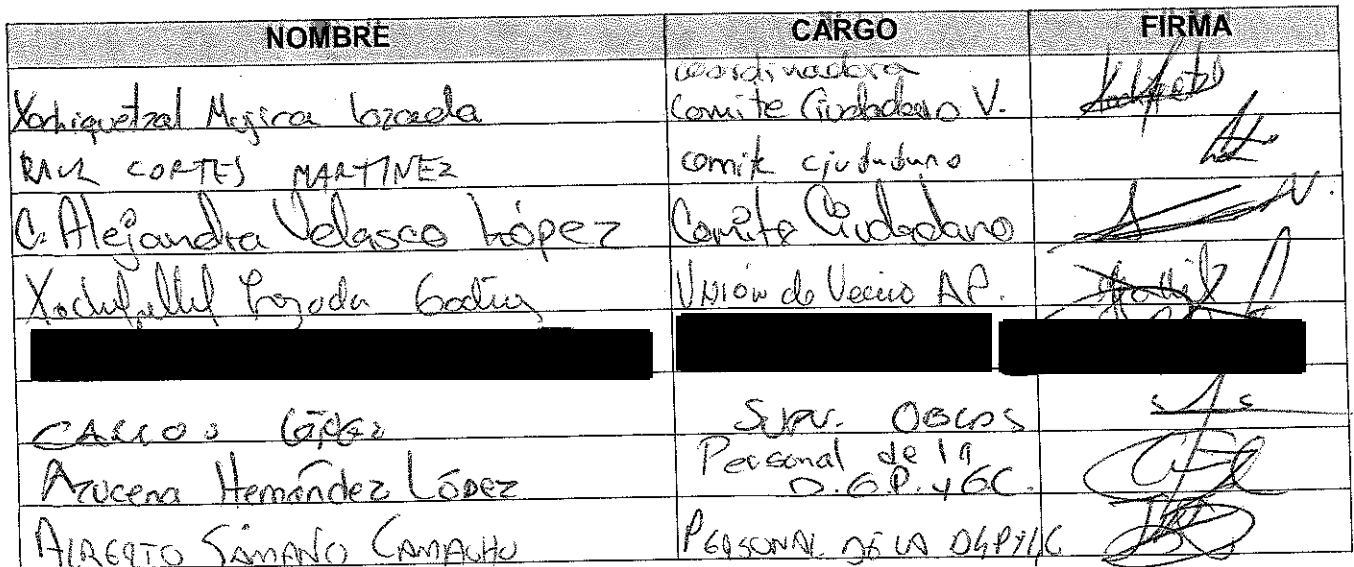 NOMBRE CARGO FIRMA
coordinadora
Xochiquetzal Mujica Lozada Comite Ciudadano V.
RAUL CORTES MARTINEZ comite ciudadano
C. Alejandra Velasco López Comite Ciudadano
Lozada Unión de Vecino AP.
CARLOS SUPV. OBRAS
Azucena Hernández López Personal de la
D.G.P. y GC.
ALBERTO SÁMANO CAMACHO PERSONAL DE LA DGPYGC